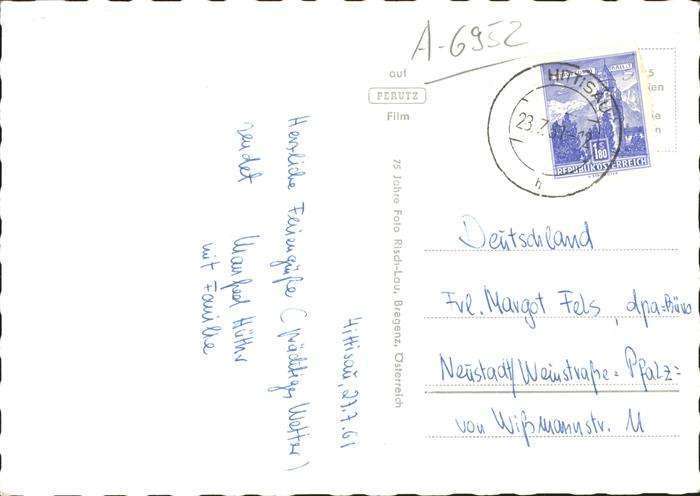 A-6952
auf
PERUTZ
Film
75 Jahre Foto Risch-Lau, Bregenz, Österreich
HITTISAU
23.7.
h
1.80
REPUBLIK ÖSTERREICH
Hittisau, 21.7.61
Herzliche Feriengrüße (prächtiges Wetter)
sendet
Manfred
mit Familie
Deutschland
Frl. Margot Fels, dpa-Büro
Neustadt/Weinstraße-Pfalz-
von Wißmannstr. 11